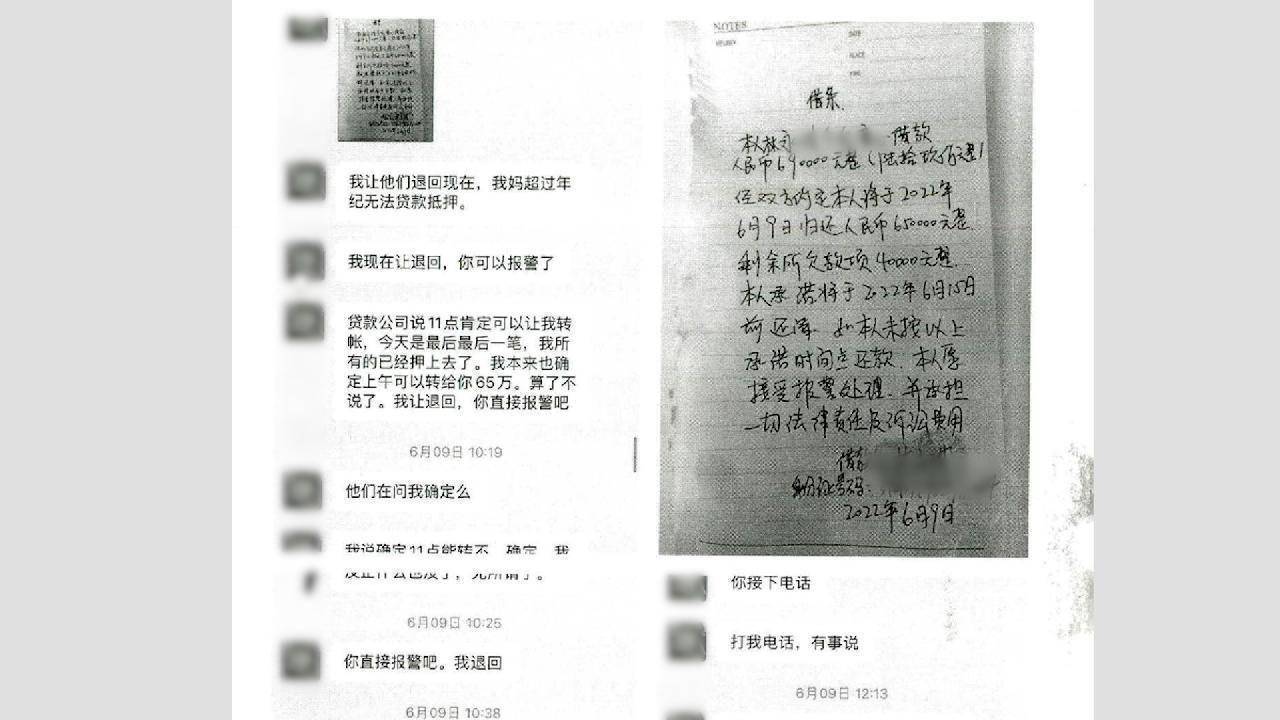 我让他们退回现在，我妈超过年
纪无法贷款抵押。
我现在让退回，你可以报警了
贷款公司说11点肯定可以让我转
帐，今天是最后最后一笔，我所
有的已经押上去了。我本来也确
定上午可以转给你65万。算了不
说了。我让退回，你直接报警吧
6月09日 10:19
他们在问我确定么
我说确定11点能转不，确定，我
没正什么也没了，无所谓了。
6月09日 10:25
你直接报警吧。我退回
6月09日 10:38
NOTES
DATE
PLACE
借条
本人 借款
人民币690000元整（陆拾玖万元整）
经双方约定本人将于2022年
6月9日归还人民币650000元整
剩余所欠款项40000元整
本人承诺将于2022年6月15日
前还清 如本人未按以上
承诺时间点还款 本人愿
接受报警处理 并承担
一切法律责任及诉讼费用
身份证号码：
2022年6月9日
你接下电话
打我电话，有事说
6月09日 12:13